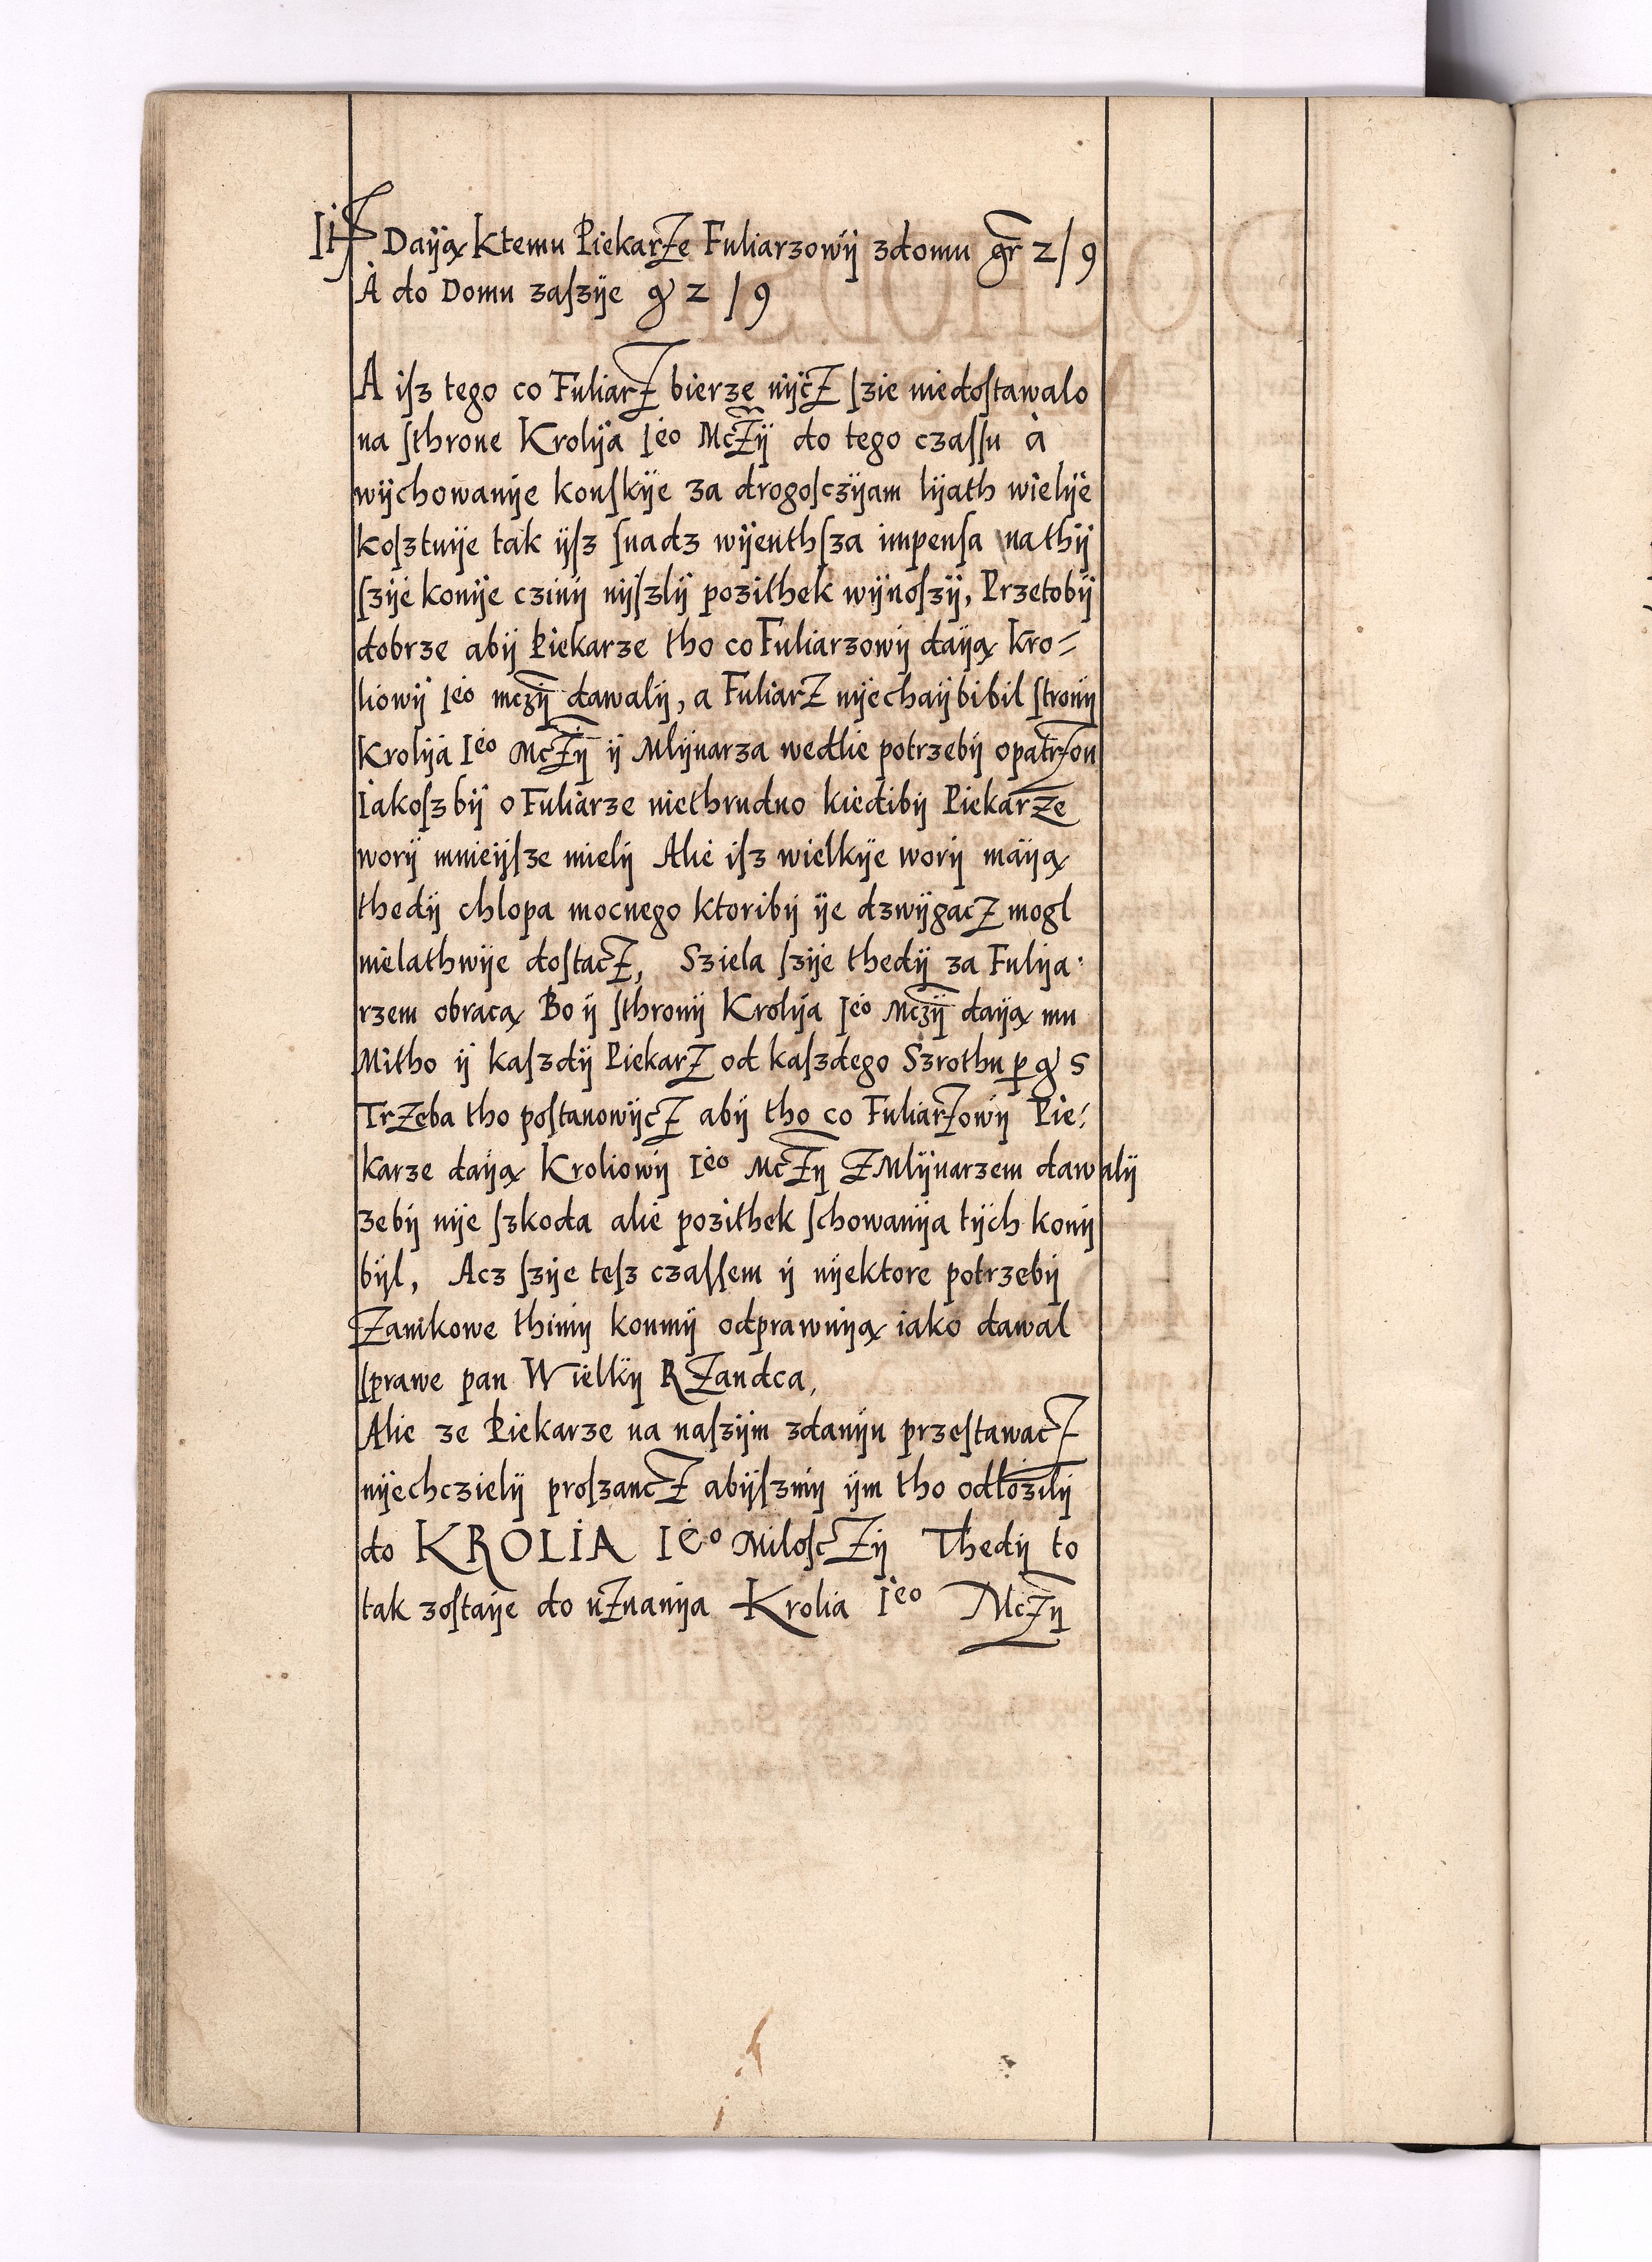 It Daÿą Ktemu PiekarZe Fuliarzowÿ zdomu gr 2/9
A do Domu zaſzÿe g 2 /9
A iſz tego co FuliarZ bierze nÿcZ ſzie niedoſtawalo
na ſthrone Krolÿa Ieo McZÿ do tego czaſſu a
wÿchowanÿe konſkÿe za drogoſczÿam lÿath wielÿe
koſztuÿe tak ÿſz ſnadz wÿenthſza impenſa na thÿ
ſzÿe konÿe czinÿ nÿſzlÿ pozithek wÿnoſzÿ, Przetobÿ
dobrze abÿ Piekarze tho co Fuliarzowÿ daÿą Kro=
liowÿ Ieo mczÿ dawalÿ, a FuliarZ nÿechaÿbibil ſtronÿ
Krolÿa Ieo McZÿ ÿ Mlÿnarza wedlie potrzebÿ opatrZon
Iakoſz bÿ o Fuliarze niethrudno kiedibÿ PiekarZe
worÿ mnieÿſze mielÿ Alie iſz wielkÿe worÿ maÿą
thedÿ chlopa mocnego ktoribÿ ÿe dzwÿgacZ mogl
nielathwÿe doſtacZ, Sziela ſzÿe thedÿ za Fulÿa:
rzem obracą Bo ÿ ſthronÿ Krolÿa Ieo Mczÿ daÿą mu
Mitho ÿ kaſzdÿ PiekarZ od kaſzdego Szrothu p g s
TrZeba tho poſtanowÿcZ abÿ tho co FuliarZowÿ Pie:
karze daÿą Kroliowÿ Ieo McZÿ ZMlÿnarzem dawalÿ
zebÿ nÿe ſzkoda alie pozithek ſchowanÿa tÿch konÿ
bÿl, Acz ſzÿe teſz czaſſem ÿ nÿektore potrzebÿ
Zamkowe thimÿ konmÿ odprawuÿą iako dawal
ſprawe pan Wielkÿ RZandca,
Alie ze Piekarze na naſzÿm zdanÿu przeſtawacZ
nÿechczielÿ proſzancZ abÿſzmÿ ÿm tho odłozilÿ
do KROLIA Ieo MiloſcZÿ Thedÿ to
tak zoſtaÿe do uZnanÿa Krolia Ieo McZÿ